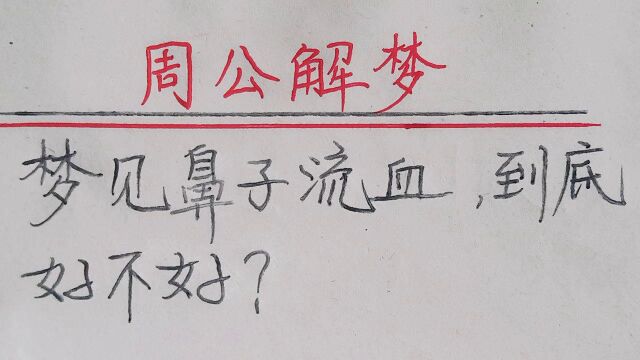 周公解梦
梦见鼻子流血,到底
好不好?